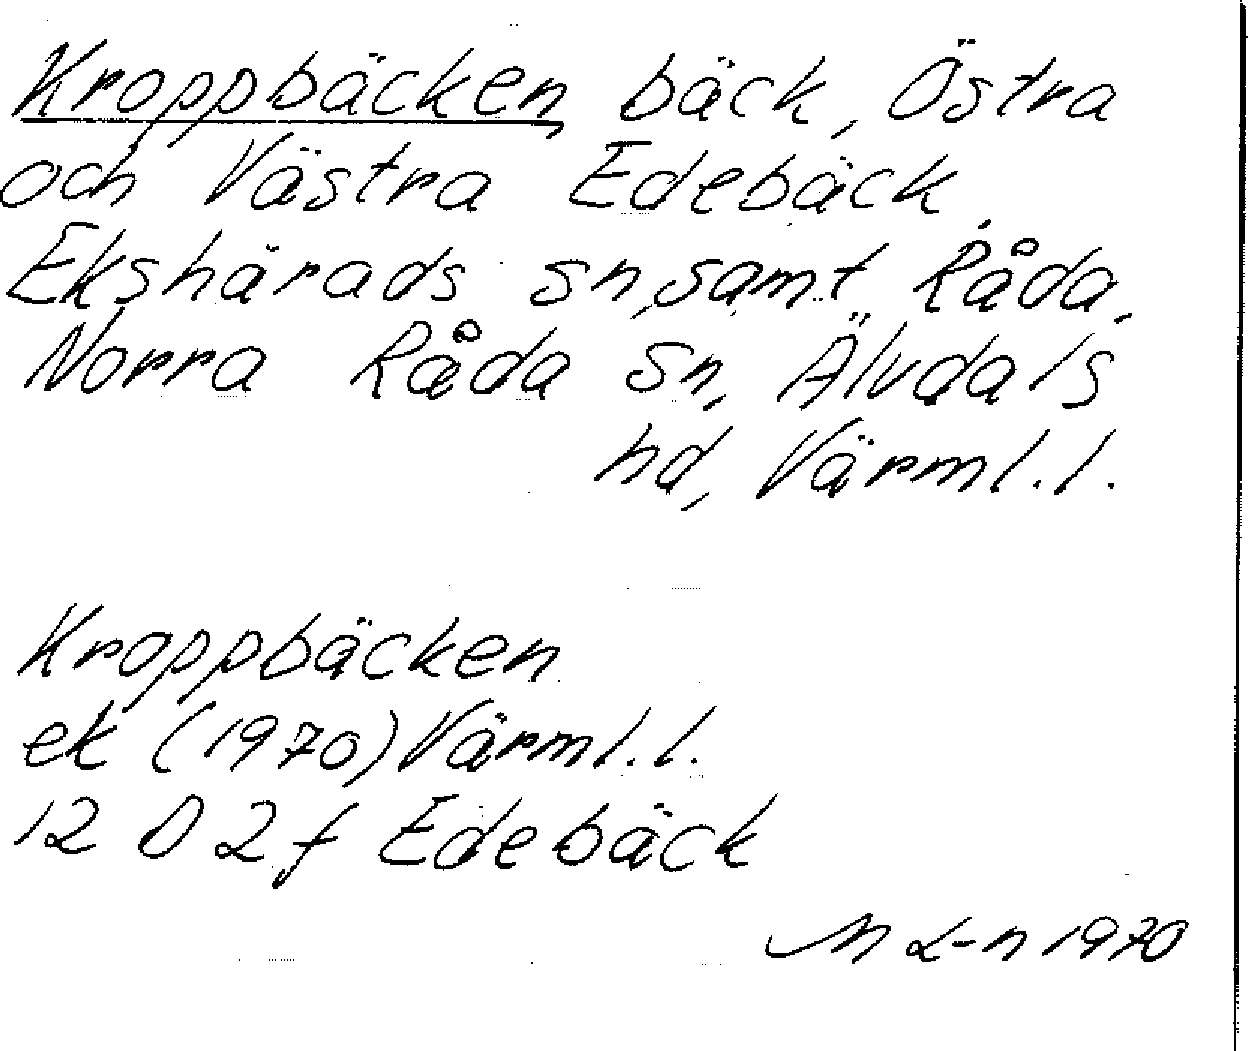 Kroppbäcken, bäck, Östra
och Västra Edebäck,
Ekshärads sn, samt Råda,
Norra Råda sn, Älvdals
hd, Värml. l.
Kroppbäcken
ek (1970) Värml. l.
12 D 2 f Edebäck
M L-n 1970